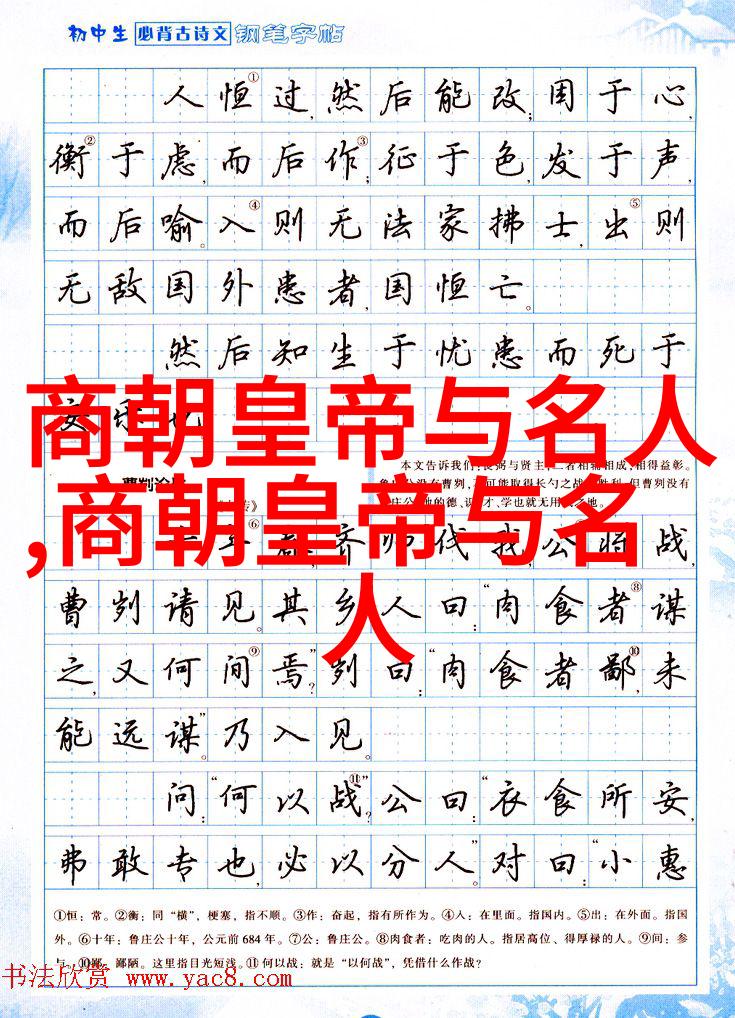 初中生 必背古诗文 钢笔字帖
人恒①过,然后能改;困于心,
衡②于虑,而后作③;征于色,发于声,
而后喻。入④则无法家拂士,出⑤则
无敌国外患者,国恒亡。
然后知生于忧患而死于
安乐也
商朝皇帝与名人
,商朝皇帝与名
人
本文告诉我们:良弼与贤主,二者相辅相成,相得益彰。
曹刿论战
⑥ 齐师伐我,公⑦将战,
曹刿请见。其乡人曰:“肉食者⑧谋
之,又何间⑨焉?”刿曰:“肉食者鄙⑩,未
能远谋。”乃入见。
问:“何以战⑪?”公曰:“衣食所安,
弗敢专也,必以分人。”对曰:“小惠
①恒:常。②衡:同“横”,梗塞,指不顺。③作:奋起,指有所作为。④入:在里面。指国内。⑤出:在外面。指国
外。⑥十年:鲁庄公十年,公元前684年。⑦公:鲁庄公。⑧肉食者:吃肉的人。指居高位、得厚禄的人。⑨间:参
与。⑩鄙:鄙陋。这里指目光短浅。⑪何以战:就是“以何战”,凭借什么作战?
书法欣赏 www.yac8.com